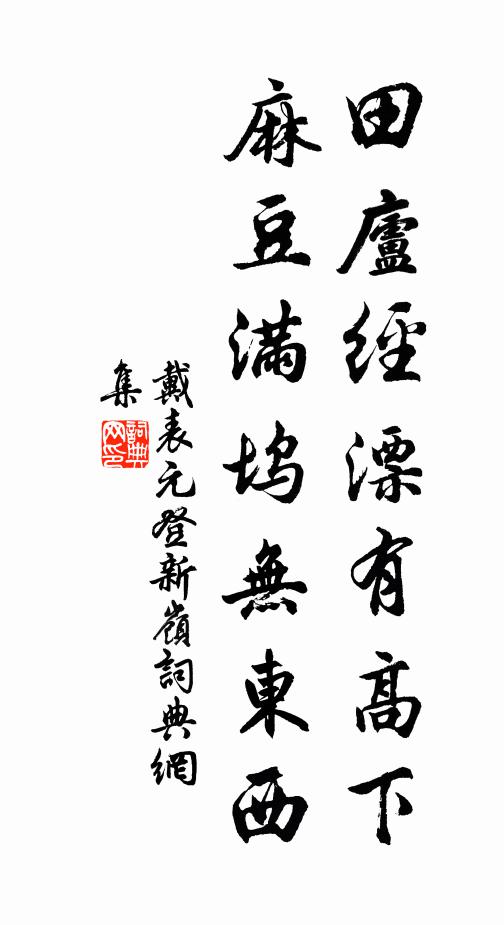 田廬經漂有高下
麻豆滿塢無東西
戴表元登新嶺詞典網
集
詞典網印